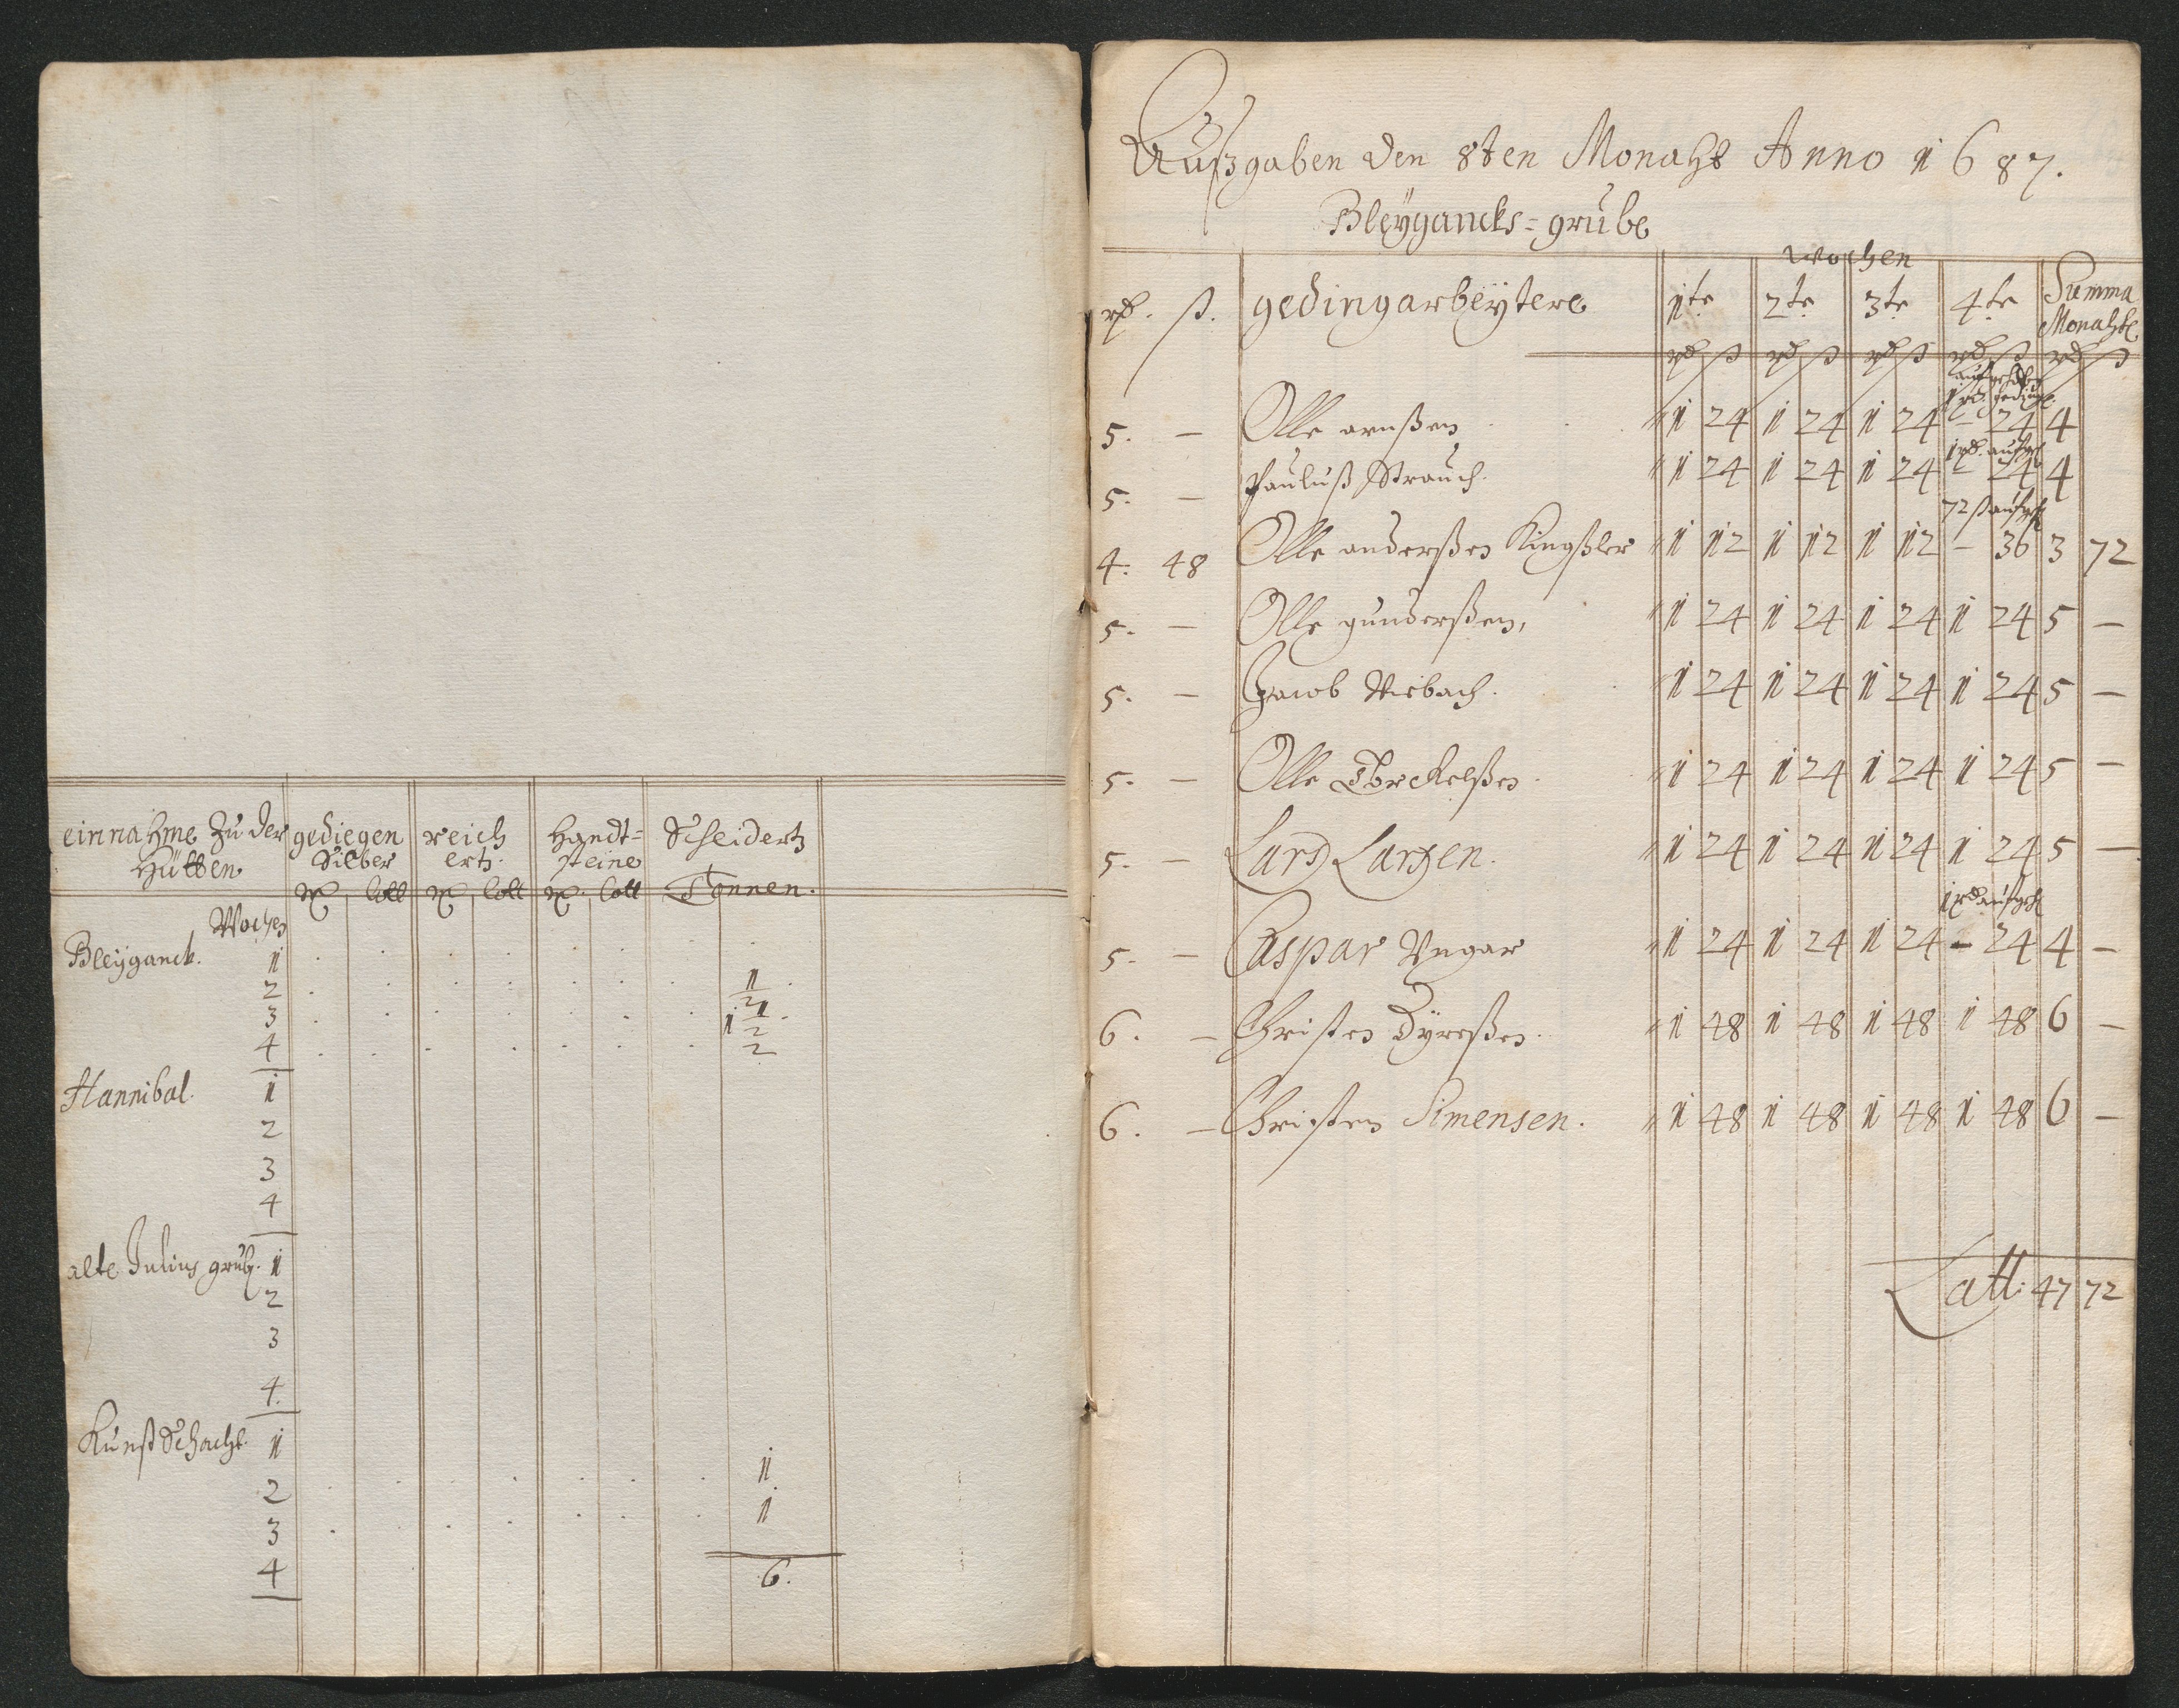 einnahme zu der gediegen reich handt= Scheidertz
Hütten Silber ertz. steine
lott lott lott Tonnen.
Wochen
Bleÿganck. 1 . . . . . . . .
2 . . . . . . . 1/2 .
3 . . . . . . . 1 1/2 .
4 . . . . . . . 2
Hannibal. 1
2
3
4
alte Julius grub. 1
2
3
4.
Kunst Schacht. 1
2 . . . . . . . 1
3 . . . . . . . 1
4 6.
Außgaben den 8ten Monaht Anno 1687.
Bleÿgancks=grube
wochen
rd. ß. gedingarbeÿtere 1te 2te 3te 4te Summa
Monahtl
rd ß rd ß rd ß rd ß rd ß
5. — Olle arnßen 1 24 1 24 1 24 — 24 4
1 rd. aufgeh
5. — Pauluß Strauch. 1 24 1 24 1 24 — 24 4
72 ß aufgeh
4. 48 Olle anderßen Kingßler 1 12 1 12 1 12 — 36 3 72
5. — Olle gunderßen, 1 24 1 24 1 24 1 24 5 —
5. — Jacob Viebach. 1 24 1 24 1 24 1 24 5 —
5. — Olle Torckelßen. 1 24 1 24 1 24 1 24 5 —
5. — Lars Larsen. 1 24 1 24 1 24 1 24 5 —
1 rd aufgeh
5. — Caspar Ungar 1 24 1 24 1 24 — 24 4 —
6. — Christen Dÿreßen. 1 48 1 48 1 48 1 48 6 —
6. — Christen Simensen. 1 48 1 48 1 48 1 48 6 —
Latt: 47 72